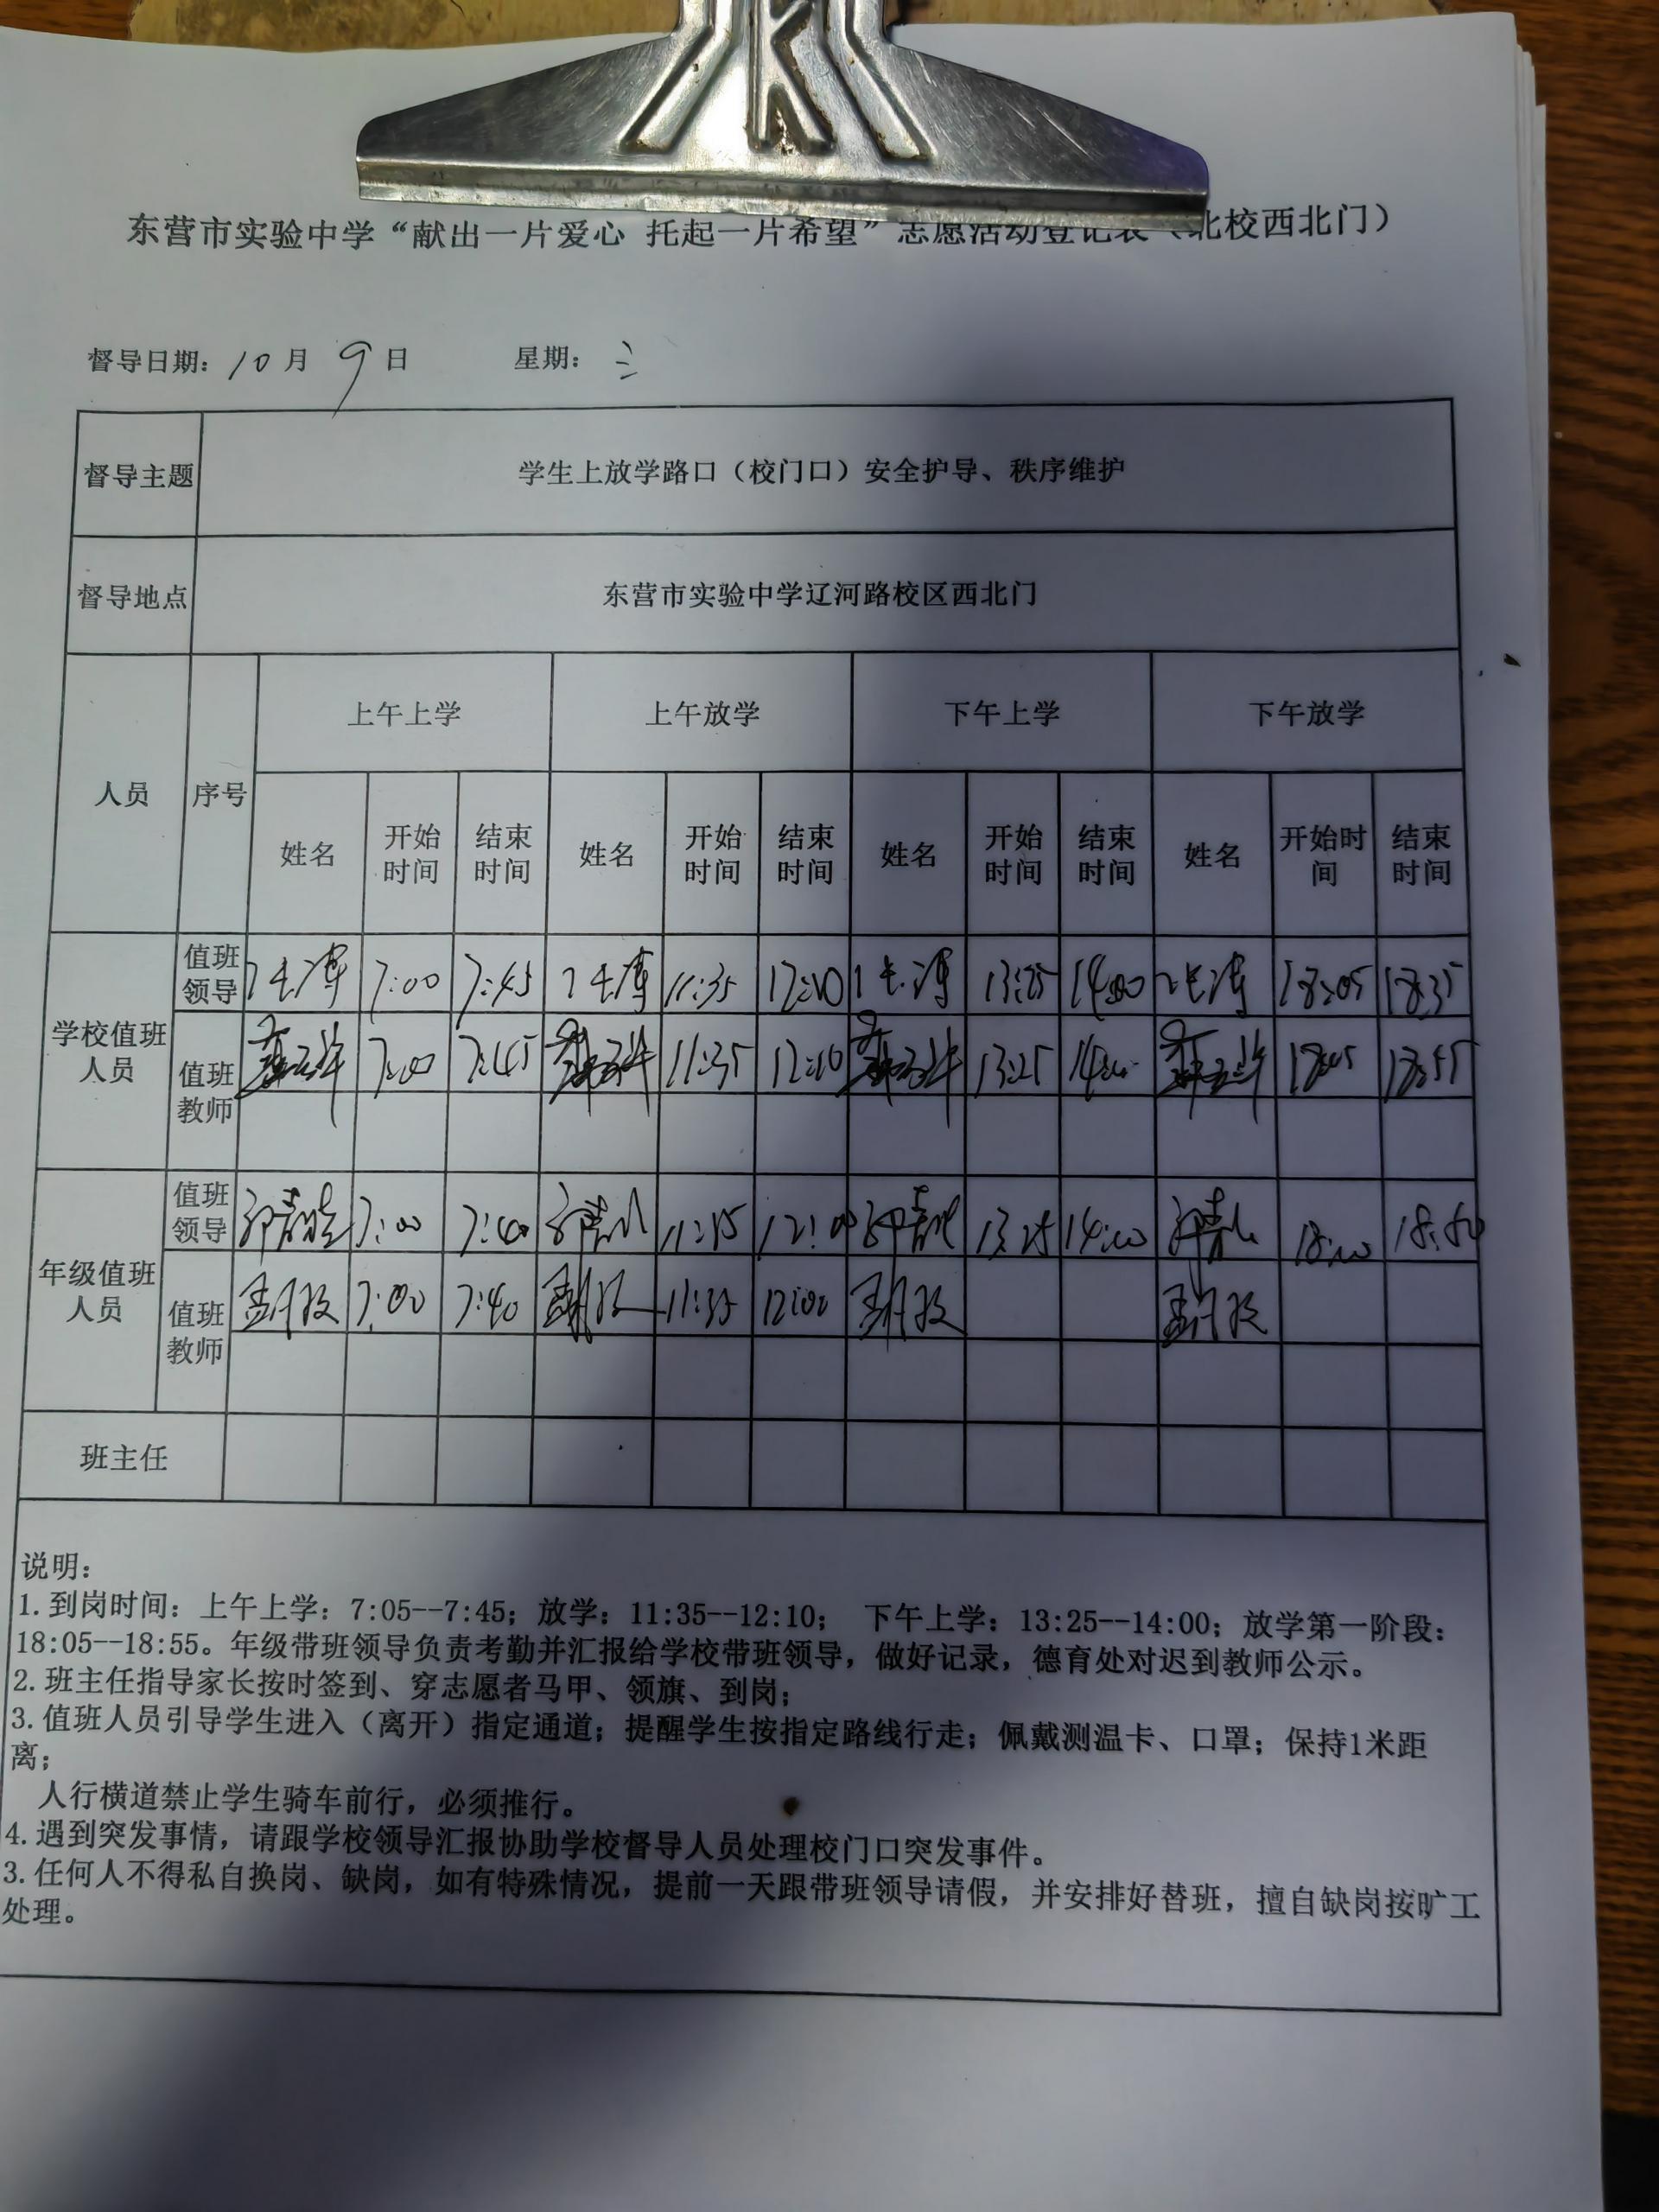 东营市实验中学“献出一片爱心 托起一片希望”志愿活动登记表（北校西北门）
督导日期：10月9日 星期：三
督导主题 学生上放学路口（校门口）安全护导、秩序维护
督导地点 东营市实验中学辽河路校区西北门
人员 序号 上午上学 上午放学 下午上学 下午放学
姓名 开始时间 结束时间 姓名 开始时间 结束时间 姓名 开始时间 结束时间 姓名 开始时间 结束时间
学校值班人员
值班领导 7:00 7:45 11:35 12:10 13:25 14:00 18:05 18:35
值班教师 7:00 7:45 11:35 12:10 13:25 18:55
年级值班人员
值班领导 7:00 7:40 12:00 13:25 14:00 18:00 18:50
值班教师 7:00 7:40 11:35 12:00
班主任
说明：
1.到岗时间：上午上学：7:05--7:45；放学：11:35--12:10； 下午上学：13:25--14:00；放学第一阶段：
18:05--18:55。年级带班领导负责考勤并汇报给学校带班领导，做好记录，德育处对迟到教师公示。
2.班主任指导家长按时签到、穿志愿者马甲、领旗、到岗；
3.值班人员引导学生进入（离开）指定通道；提醒学生按指定路线行走；佩戴测温卡、口罩；保持1米距
离；
人行横道禁止学生骑车前行，必须推行。
4.遇到突发事情，请跟学校领导汇报协助学校督导人员处理校门口突发事件。
3.任何人不得私自换岗、缺岗，如有特殊情况，提前一天跟带班领导请假，并安排好替班，擅自缺岗按旷工
处理。